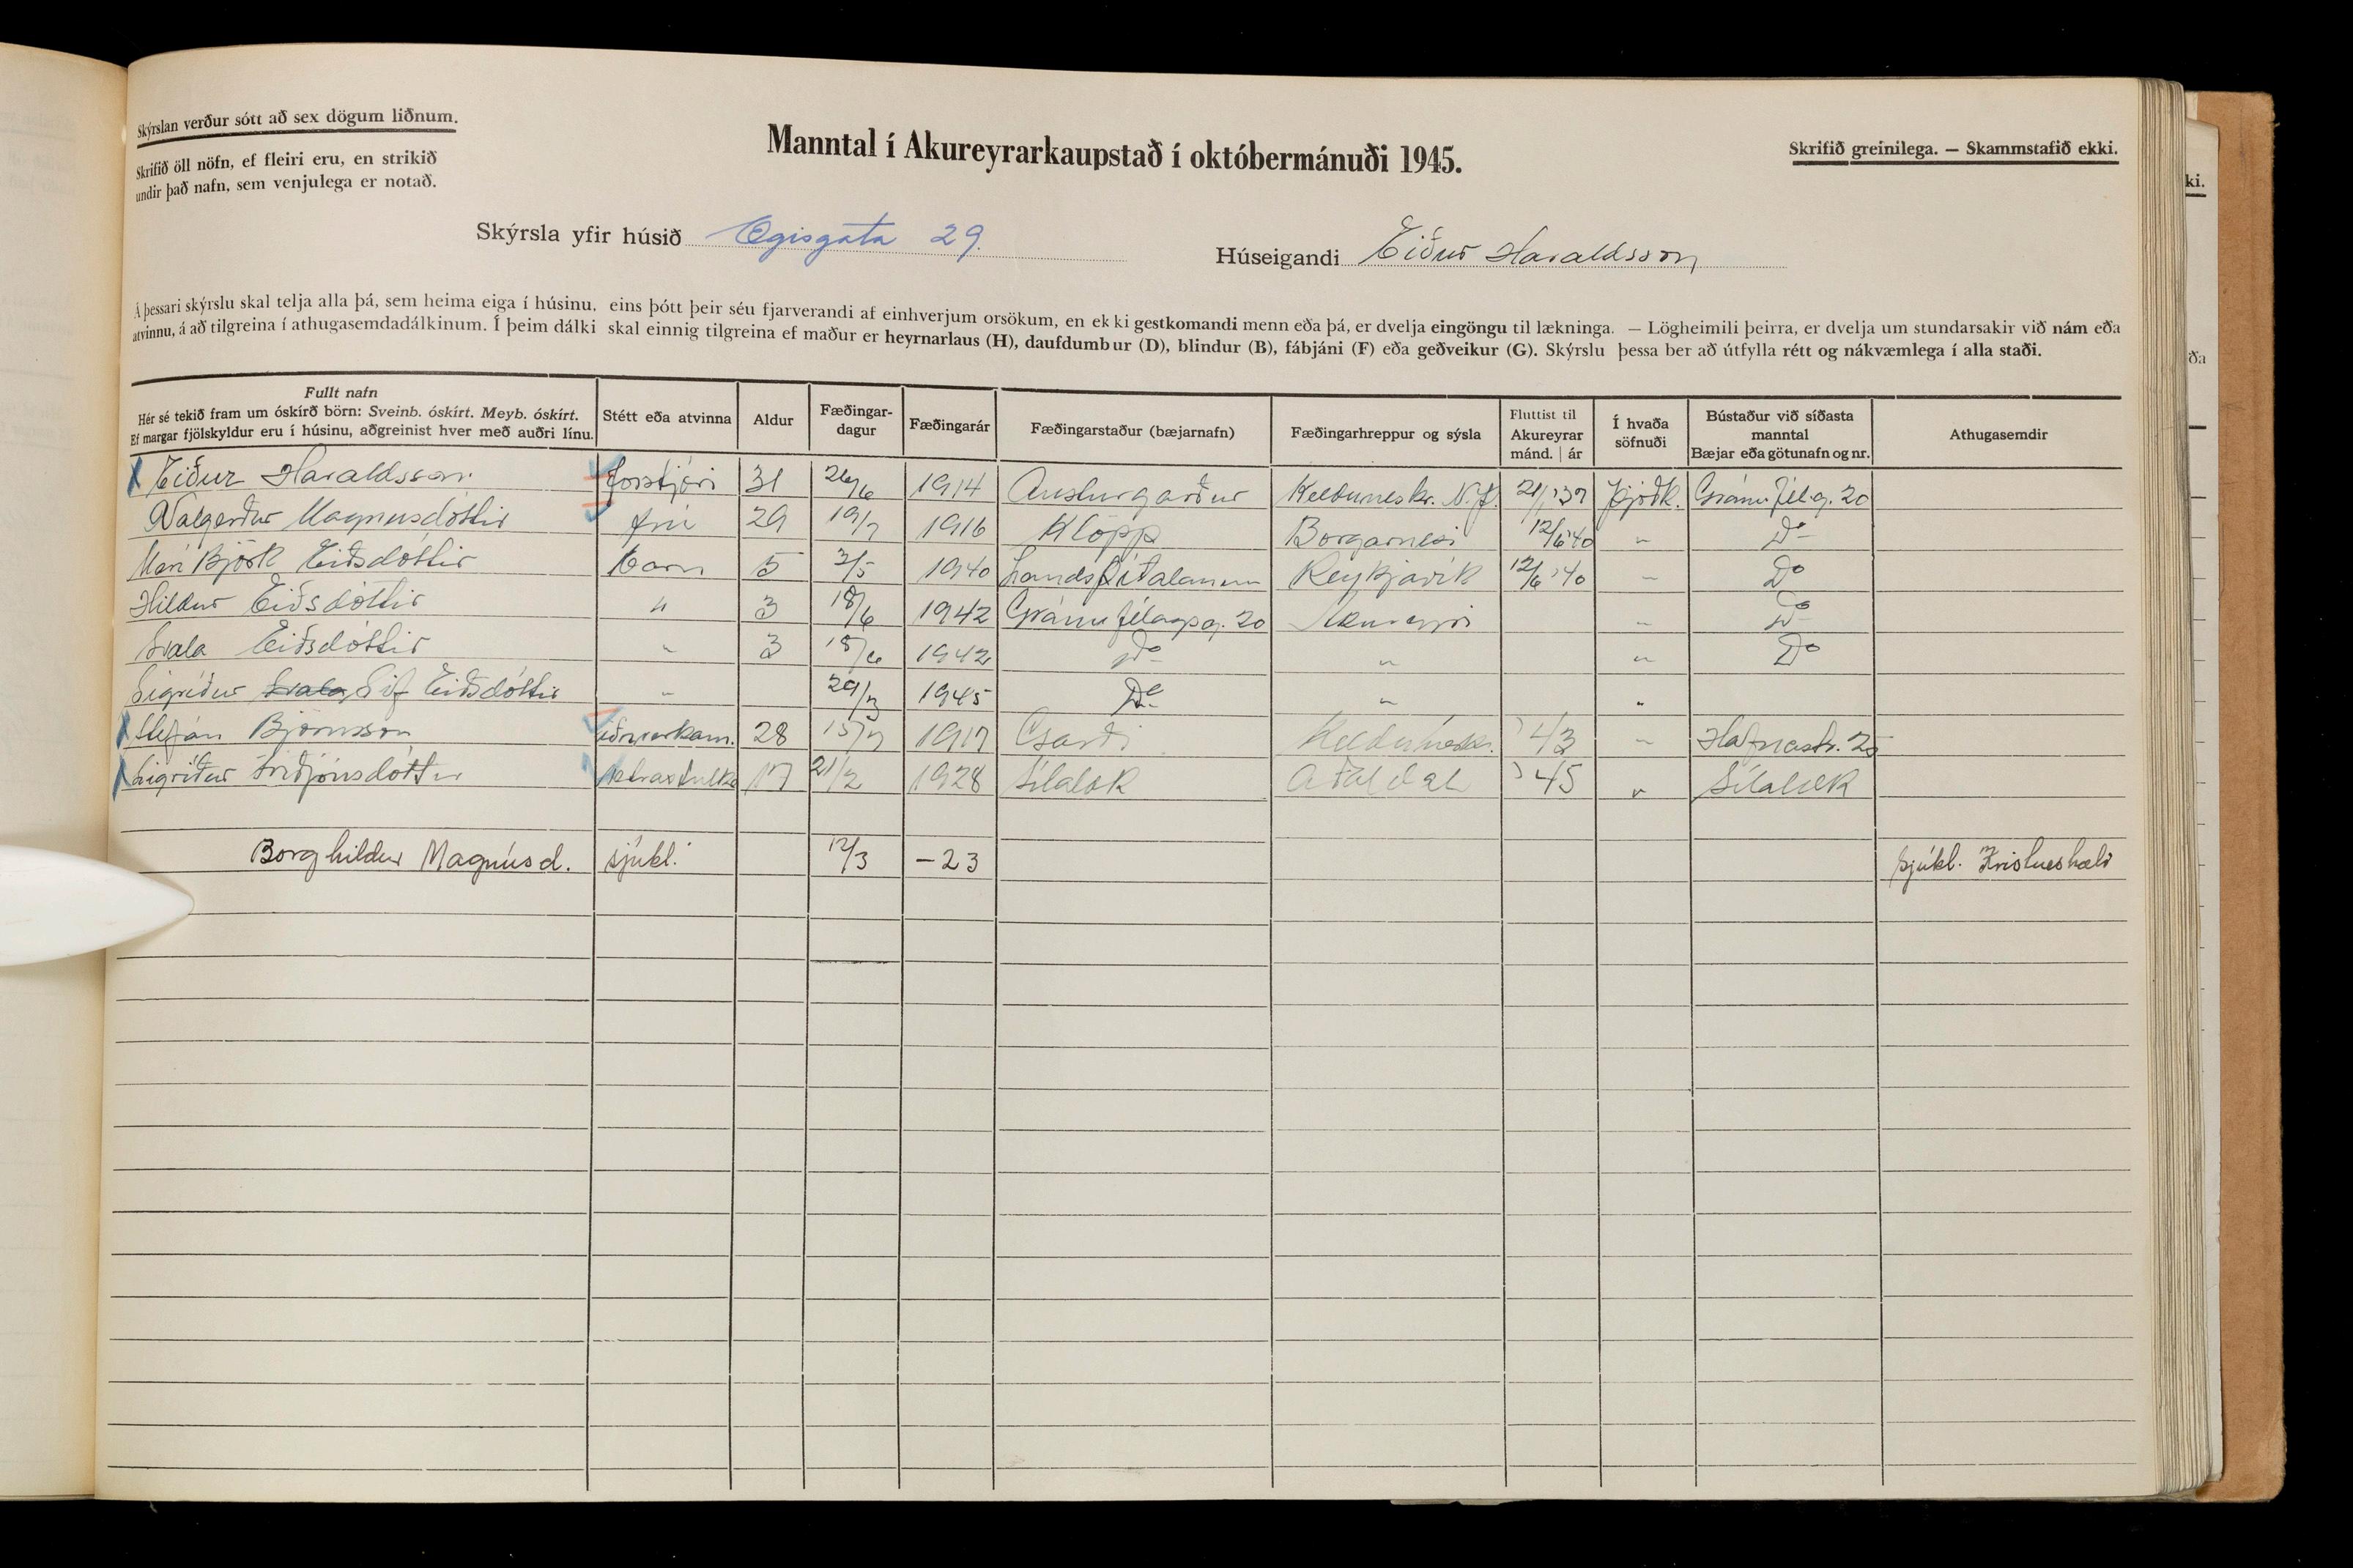 Skýrslan verður sótt að sex dögum liðnum.
Skrifið öll nöfn, ef fleiri eru, en strikið
undir það nafn, sem venjulega er notað.
Manntal í Akureyrarkaupstað í októbermánuði 1945.
Skrifið greinilega. — Skammstafið ekki.
Skýrsla yfir húsið Ægisgata 29.
Húseigandi Eiður Haraldsson
Á þessari skýrslu skal telja alla þá, sem heima eiga í húsinu, eins þótt þeir séu fjarverandi af einhverjum orsökum, en ekki gestkomandi menn eða þá, er dvelja eingöngu til lækninga. — Lögheimili þeirra, er dvelja um stundarsakir við nám eða
atvinnu, á að tilgreina í athugasemdadálkinum. Í þeim dálki skal einnig tilgreina ef maður er heyrnarlaus (H), daufdumbur (D), blindur (B), fábjáni (F) eða geðveikur (G). Skýrslu þessa ber að útfylla rétt og nákvæmlega í alla staði.
Fullt nafn
Hér sé tekið fram um óskírð börn: Sveinb. óskírt. Meyb. óskírt.
Ef margar fjölskyldur eru í húsinu, aðgreinist hver með auðri línu.
Stétt eða atvinna
Aldur
Fæðingar-
dagur
Fæðingarár
Fæðingarstaður (bæjarnafn)
Fæðingarhreppur og sýsla
Fluttist til
Akureyrar
mánd. | ár
Í hvaða
söfnuði
Bústaður við síðasta
manntal
Bæjar eða götunafn og nr.
Athugasemdir
Eiður Haraldsson forstjóri 31 26/6 1914 Austurgarður Kelduneshr. N.Þ. 21/1 '37 Þjóðk. Gránufél.g. 20
Valgerður Magnúsdóttir frú 29 19/7 1916 Klöpp Borgarnesi 12/6 '40 " Do
Björk Eiðsdóttir Barn 5 3/5 1940 Landspítalanum Reykjavík 12/6 '40 " Do
Hildur Eiðsdóttir " 3 18/6 1942 Gránufélagsg. 20 Akureyri " Do
Svala Eiðsdóttir " 3 18/6 1942 Do " " Do
Sigríður Svala Sif Eiðsdóttir " 29/3 1945 Do " "
Stefán Björnsson iðnverkam. 28 15/7 1917 Garði Kelduneshr. '43 " Hafnarstr. 25
Sigríður Friðjónsdóttir starfsstúlka 17 21/2 1928 Sílalæk Aðaldal '45 " Sílalæk
Borghildur Magnúsd. sjúkl. 12/3 -23 sjúkl. Kristneshæli
ki.
ða